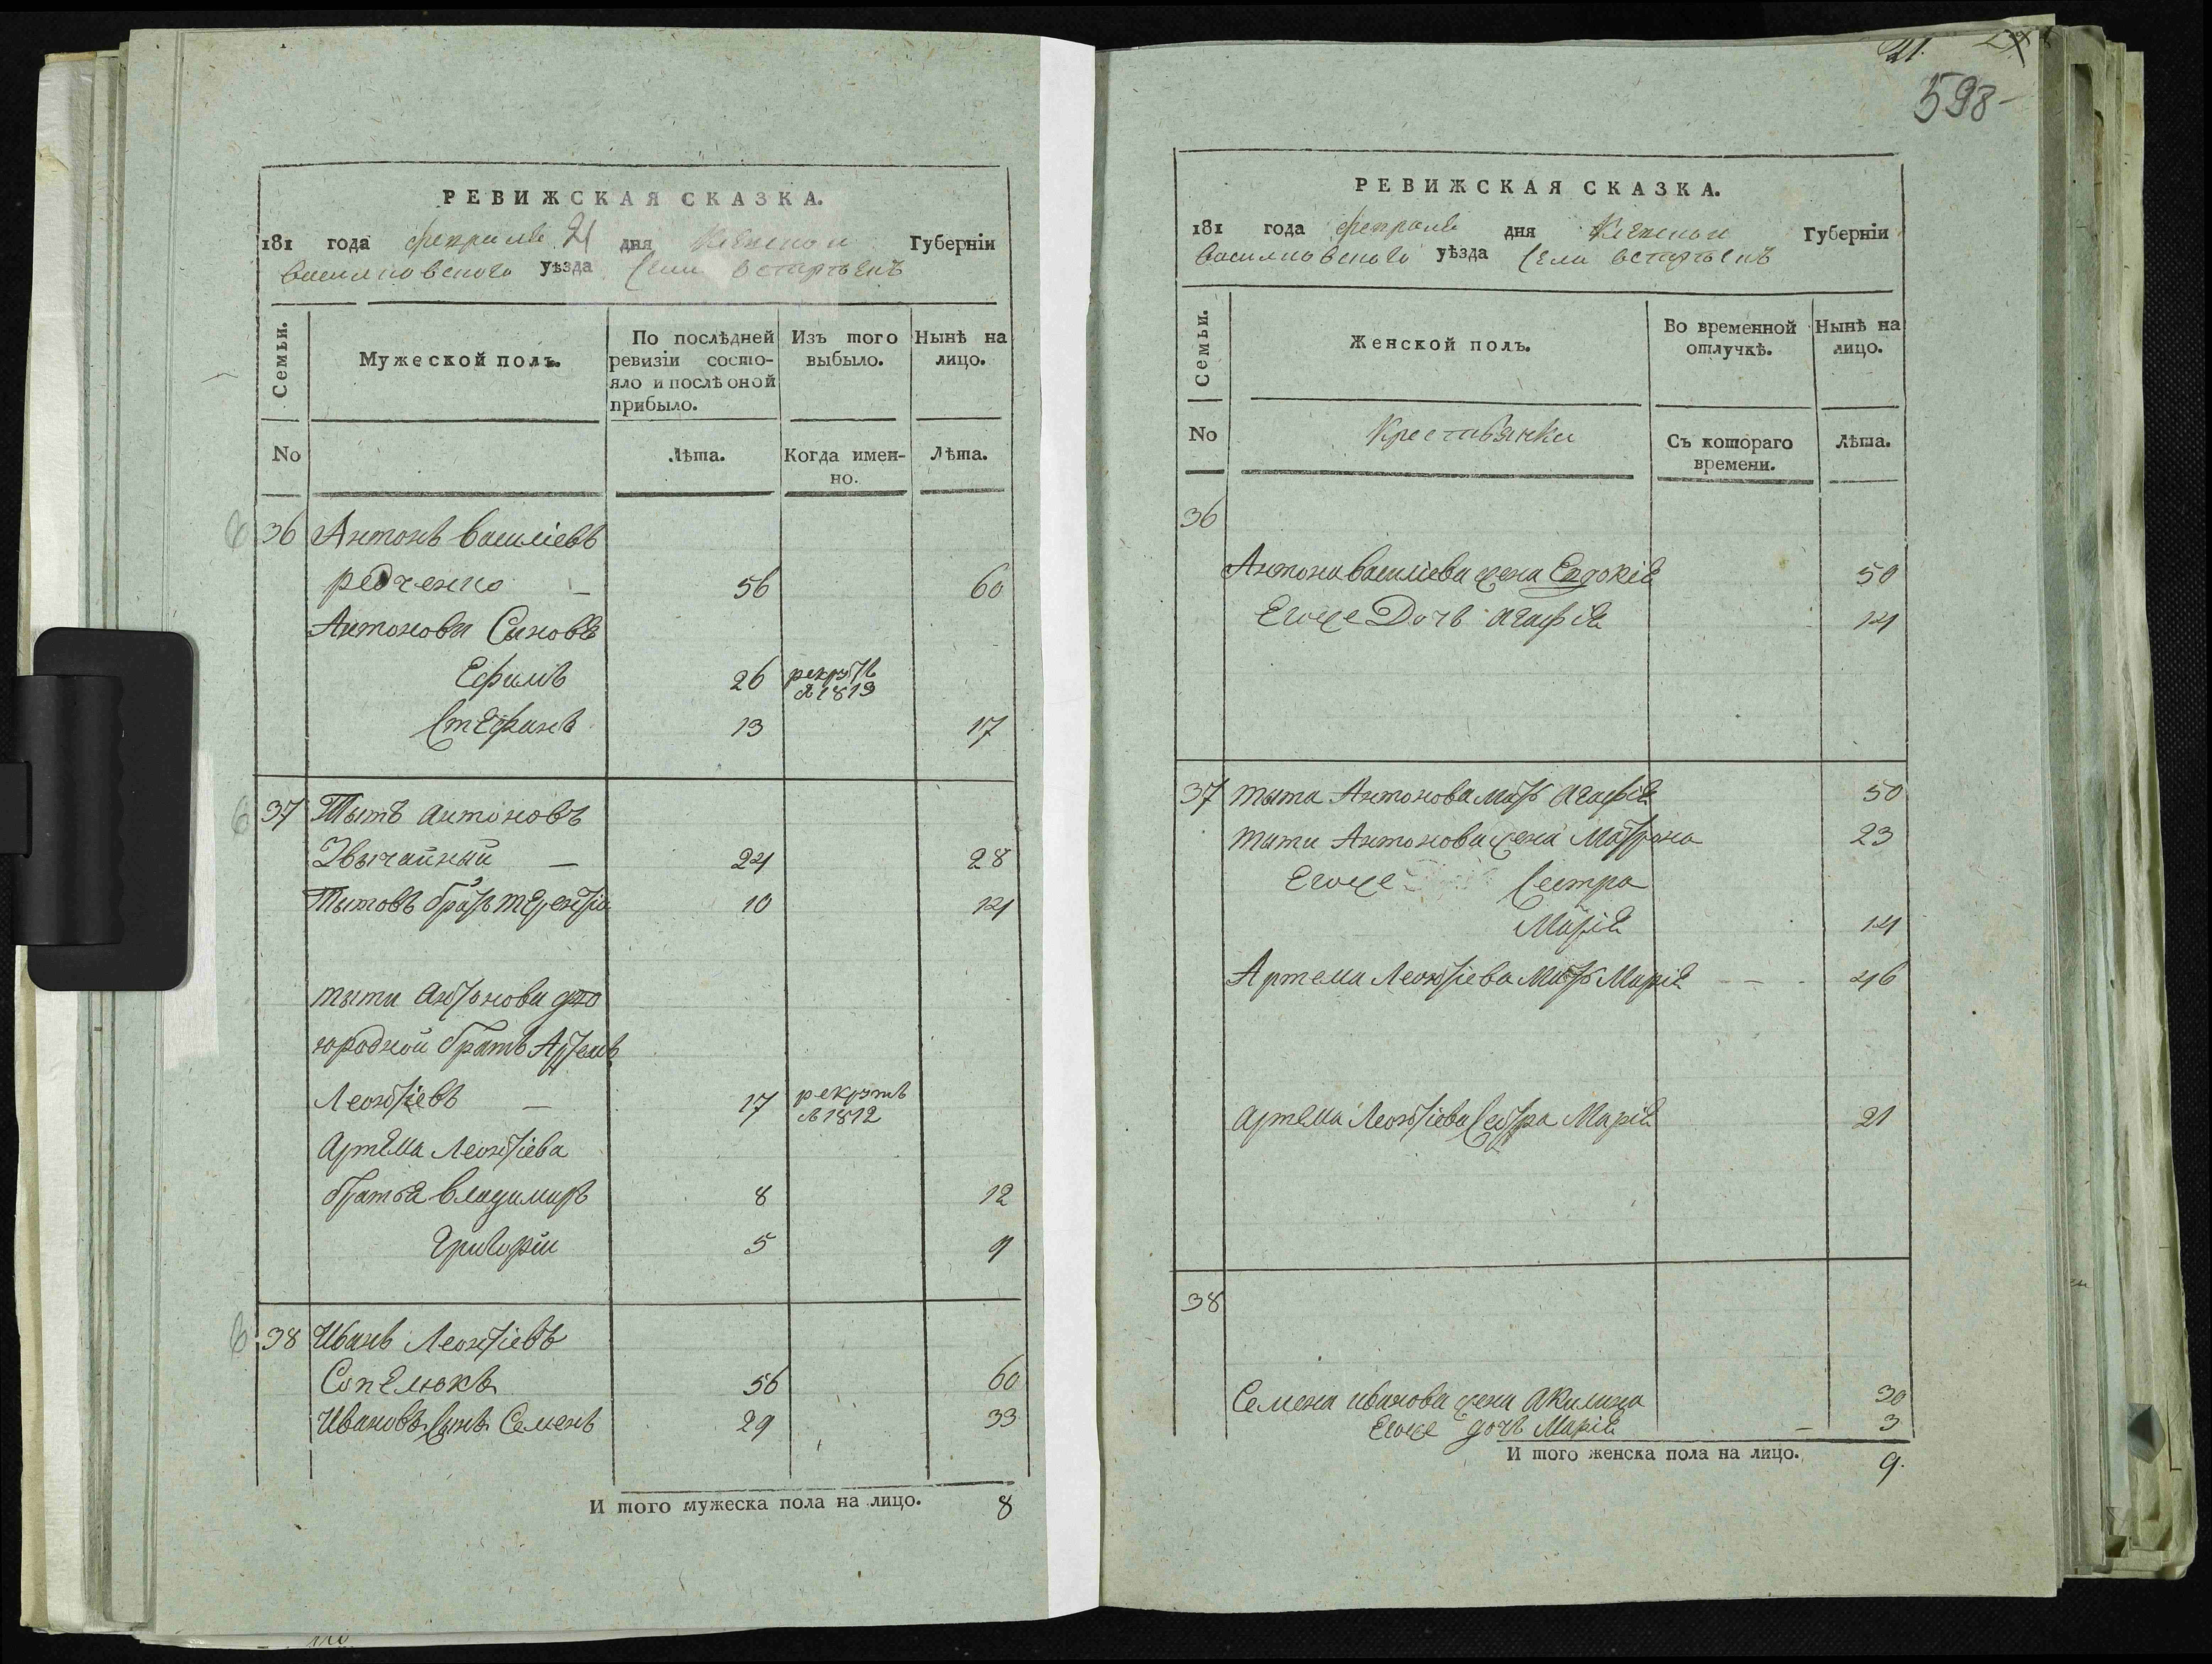 РЕВИЖСКАЯ СКАЗКА.
181 года февраля 21 дня Киевской Губерніи
Василковского уѣзда Села
Семьи. Мужеской полъ. По послѣдней ревизіи состо- Изъ того выбыло. Нынѣ на лицо.
яло и послѣ оной
прибыло.
No Лѣта. Когда имен- Лѣта.
но.
36 Антонъ Василіевъ
редченко — 56 60
Антонови Синовѣ
Ефимъ 26 рекрутъ 1813
Стефанъ 13 17
37 Тытъ Антоновъ
Звычайный — 24 28
Тытовъ братъ терентіи 10 14
тыти Антонови дво
юродной братъ Артемъ
Леонтіевъ — 17 рекрутъ 1812
Артема Леонтіева
братья Владимиръ 8 12
Григорїи 5 9
38 Иванъ Леонтіевъ
Сопелюкъ 56 60
Ивановъ Сынъ Семенъ 29 33
И того мужеска пола на лицо. 8
21.
598
РЕВИЖСКАЯ СКАЗКА.
181 года февраля дня Киевской Губерніи
Василковского уѣзда Села
Семьи. Женской полъ. Во временной отлучкѣ. Нынѣ на лицо.
No Крестьянки Съ котораго времени. Лѣта.
36
Антона Василиева жена Евдокія 50
Егоже Дочь Агафія 14
37 тыта Антонова мать Агафія 50
тыти Антонова жена Матрона 23
Егоже Сестра
Марія 14
Артема Леонтіева мать Марія 46
Артема Леонтіева Сестра Марія 21
38
Семена Иванова жена Акилина 30
Егоже дочь Марія — 3
И того женска пола на лицо. 9.